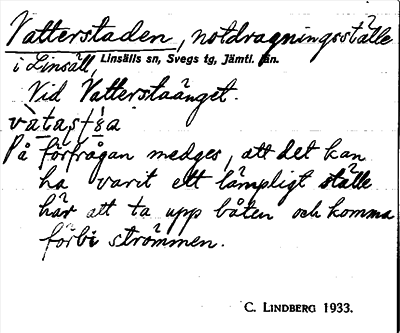 Vatterstaden, notdragningsställe
i Linsäll, Linsälls sn, Svegs tg, Jämtl. län.
Vid Vatterstaänget.
På förfrågan medges, att det kan
ha varit ett lämpligt ställe
här att ta upp båten och komma
förbi strömmen.
C. LINDBERG 1933.